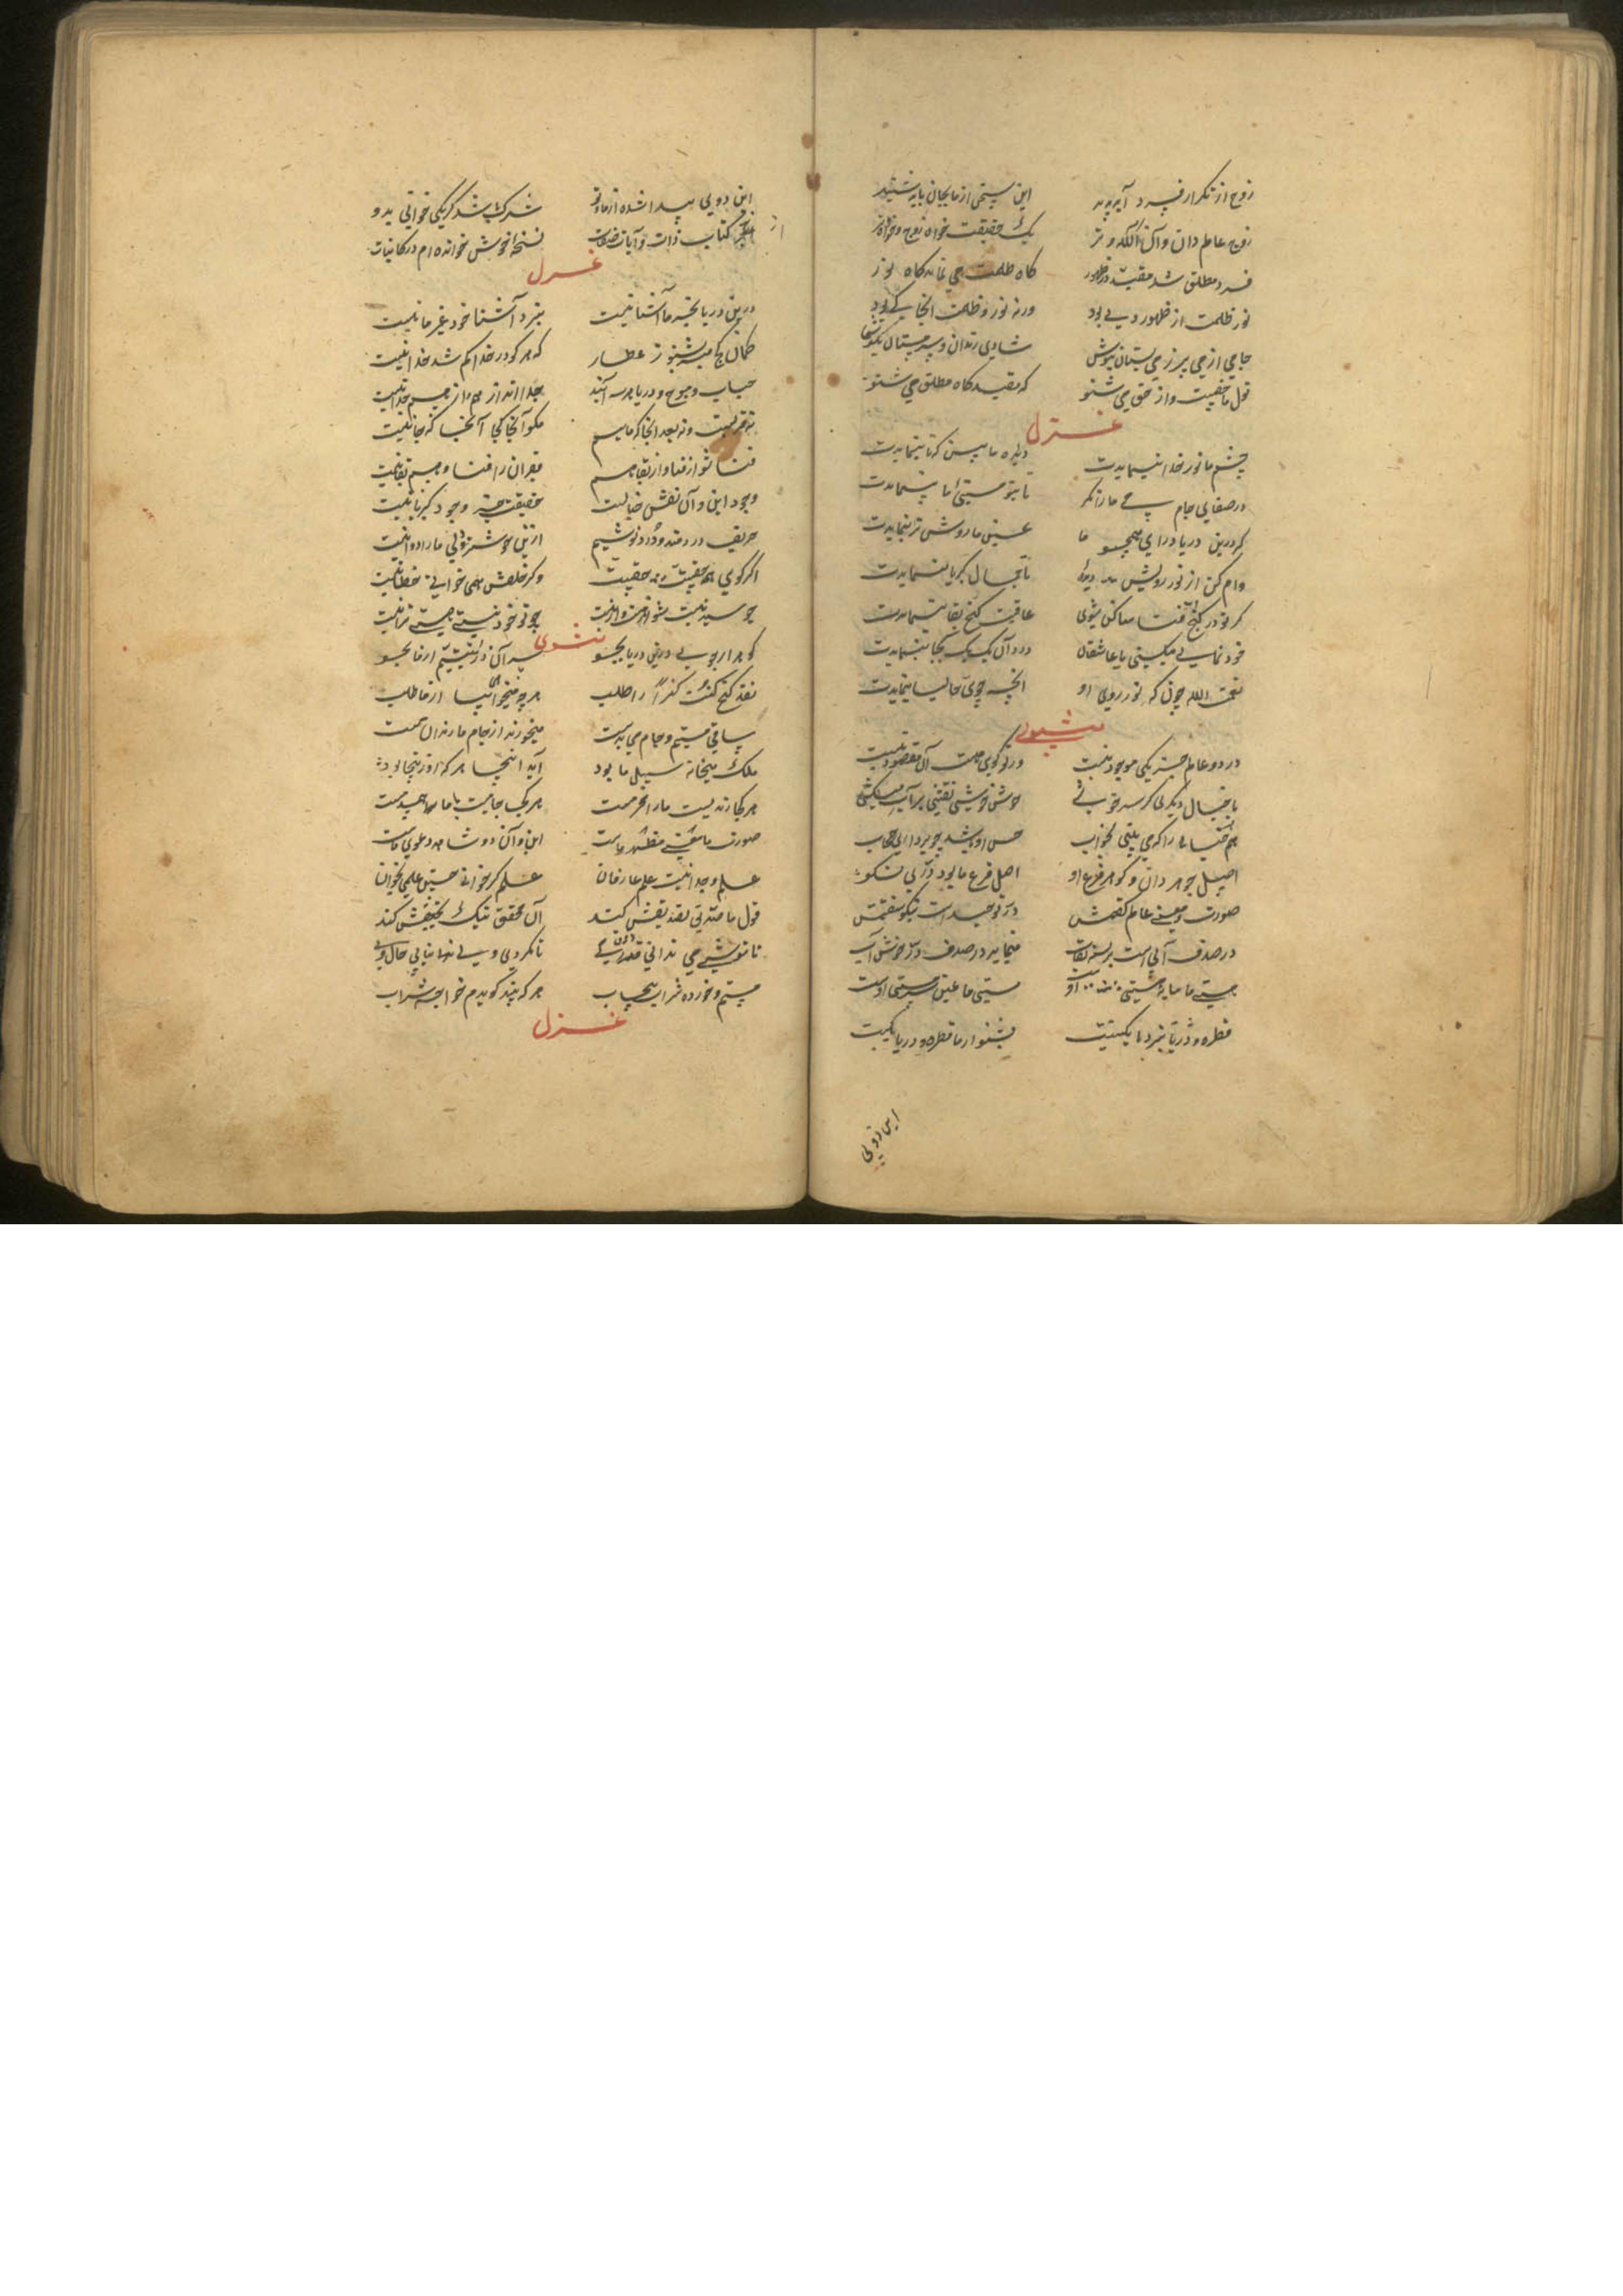 زوج از تکرار فرد آید پدید این سخن از ما بجان باید شنید
زوج عالم دان و آن الله وتر یک حقیقت خواه زوج و خواه وتر
فرد مطلق شد مقید در ظهور گاه ظلمت می نماید گاه نور
نور ظلمت از ظهور وی بود ورنه نور و ظلمت آنجا کی بود
جامی از می پر ز می بستان بنوش شادی رندان و سرمستان بنوش
قول ما حقیست و از حق می شنو که مقید گاه مطلق می شنو
غزل
چشم ما نور خدا بنمایدت دیده ما بین که تا بنمایدت
در صفای جام می ما را نگر تا بتو مستی ما بنمایدت
گر درین دریا درآی همچو ما عین ما روشن ترا بنمایدت
وام کن از نور رویش دیده تا جمال کبریا بنمایدت
گر تو در کنج فنا ساکن شوی عاقبت گنج بقا بنمایدت
خود نمایی میکنی با عاشقان در دان یک یک بجا بنمایدت
نعمت الله جوی که نور روی او آنچه جوی حالیا بنمایدت
مثنوی
در دو عالم جز یکی موجود نیست ور تو گویی هست آن مقصود نیست
با خیال دیگری گر سر خوشی خوش خوشی نقشی بر آب میکشی
هم خیالی را که می بینی بخواب حسن او باشد چو برداری حجاب
اصل جوهر دان و گوهر فرع او اصل فرع ما بود دریاب نکو
صورت و معنی عالم گفتمش در توحید است نیکو سفتمش
در صدف آبی است بسته نقاب مینماید در صدف در خوش آب
هستی ما سایه هستی اوست مستی ما عین سرمستی اوست
قطره و دریا بنزد ما یکیست بشنو از ما قطره و دریا یکیست
این دویی
این دویی پیدا شده از ما و تو شرک باشد گر یکی خوانی بدو
از کتاب ذات و آیات صفات نسخه خوش خوانده ام در کائنات
غزل
درین دریا بجز ما آشنا نیست بنزد آشنا خود غیر ما نیست
کمال میشنو ز عطار که هر کو در خدا گم شد خدا نیست
حباب و موج و دریا هر سه آبند جدا اند از هم و از هم جدا نیست
نه قربست و نه بعد آنجا که ماییم مگو آنجا کجا آنجا که جا نیست
فنا شو از فنا و از بقا هم فقیران را فنا و هم بقا نیست
وجود این و آن نقش خیالست حقیقت جز وجود کبریا نیست
حریف دردمند و درد نوشیم ازین خوشتر دلی ما را دوا نیست
اگر گویی همه حقیست حقیست وگر خلقش همی خوانی خطا نیست
چو سید نیست شو از هست و از نیست چو تو خود نیستی هستی ترا نیست
مثنوی
گوهر ار جویی درین دریا بجو سر آن در یتیم از ما بجو
نقد گنج کنت کنزا را طلب هرچه میخواهی بیا از ما طلب
ساقی مستیم و جام می بدست میخورند از جام ما رندان مست
ملک میخانه سبیل ما بود آید اینجا هر که او ز اینجا بود
هر کجا رندیست ما را محرمست هر کجا جامیست با ما همدمست
صورت ما معنی مظهر ماست این و آن دو شاهد دعوی ماست
علم وجدانیست علم عارفان علم گر خوانی چنین علمی بخوان
قول ما صدیق تصدیقش کند آن محقق نیک تحقیقش کند
تا ننوشی می ندانی ذوق می تا نگردی وی نیابی حال وی
مستم و خورده شراب بی حساب هر که بیند گویدم خوردی شراب
غزل